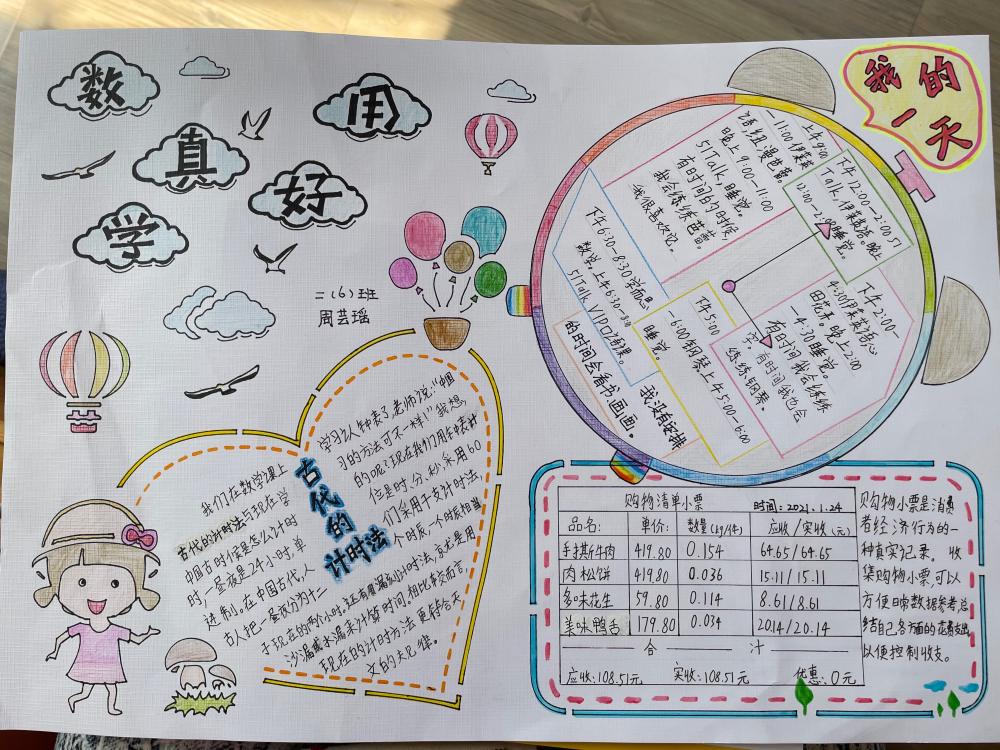 数学真好用
二(6)班
周芸瑶
我的一天
古代的
计时法
我们在数学课上
学习了人钟表了,老师说:“中国
古代的计时法与现在学
习的方法可不一样!”我想,
中国古时候是怎么计时
的呢?现在我们用钟表计
时,一昼夜是24小时,单
位是时、分、秒,采用60
进制。在中国古代,人
们采用干支计时法
古人把一昼夜分为十二
个时辰,一个时辰相当
于现在的两个小时。还有看漏刻计时法,就是用
沙漏或水漏来计算时间。相比较而言,
现在的计时方法更符合天
文的关见律。
上午9:00
—11:00伊莱英
语,纽漫芭蕾。
晚上9:00—11:00
51Talk,睡觉。
有时间的时候,
我会练练芭蕾,
我很喜欢它。
下午12:00—2:00 51
Talk,伊莱英语。晚上
下午2:00
田花弄。晚上2:00
—4:30睡觉。
有时间我会练练
字。有时间我也会
练练钢琴。
下午5:00
—6:00钢琴上午5:00—6:00
睡觉。
我没有安排
的时间会看书、画画。
下午6:30—8:30学而思
51Talk VIP口语课。
购物清单小票 时间:2021.1.24
品名: 单价: 数量(kg/件) 应收/实收(元)
手撕牛肉 419.80 0.154 64.65/64.65
肉松饼 419.80 0.036 15.11/15.11
多味花生 59.80 0.114 8.61/8.61
美味鸭舌 179.80 0.034 20.14/20.14
合 计
应收:108.51元 实收:108.51元 优惠:0元
购勾物小票是消费
者经济行为的一
种真实记录、收
集购物小票,可以
方便日常数据参考总
结自己各方面的花费支出
以便控制收支。